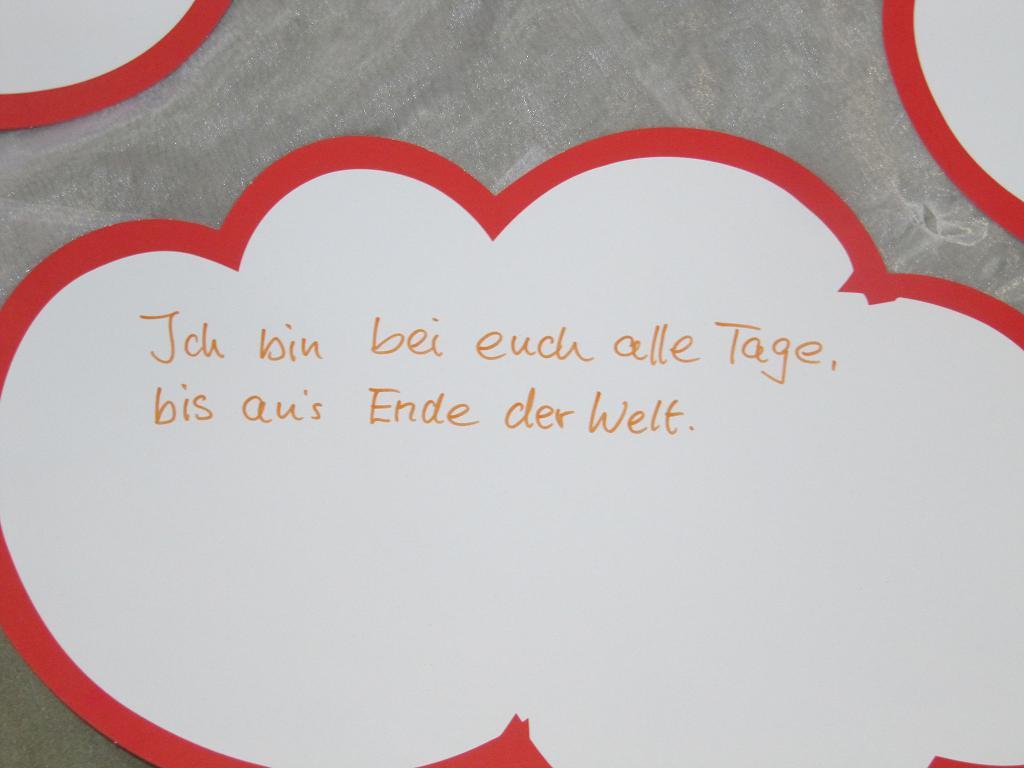 Ich bin bei euch alle Tage,
bis an's Ende der Welt.